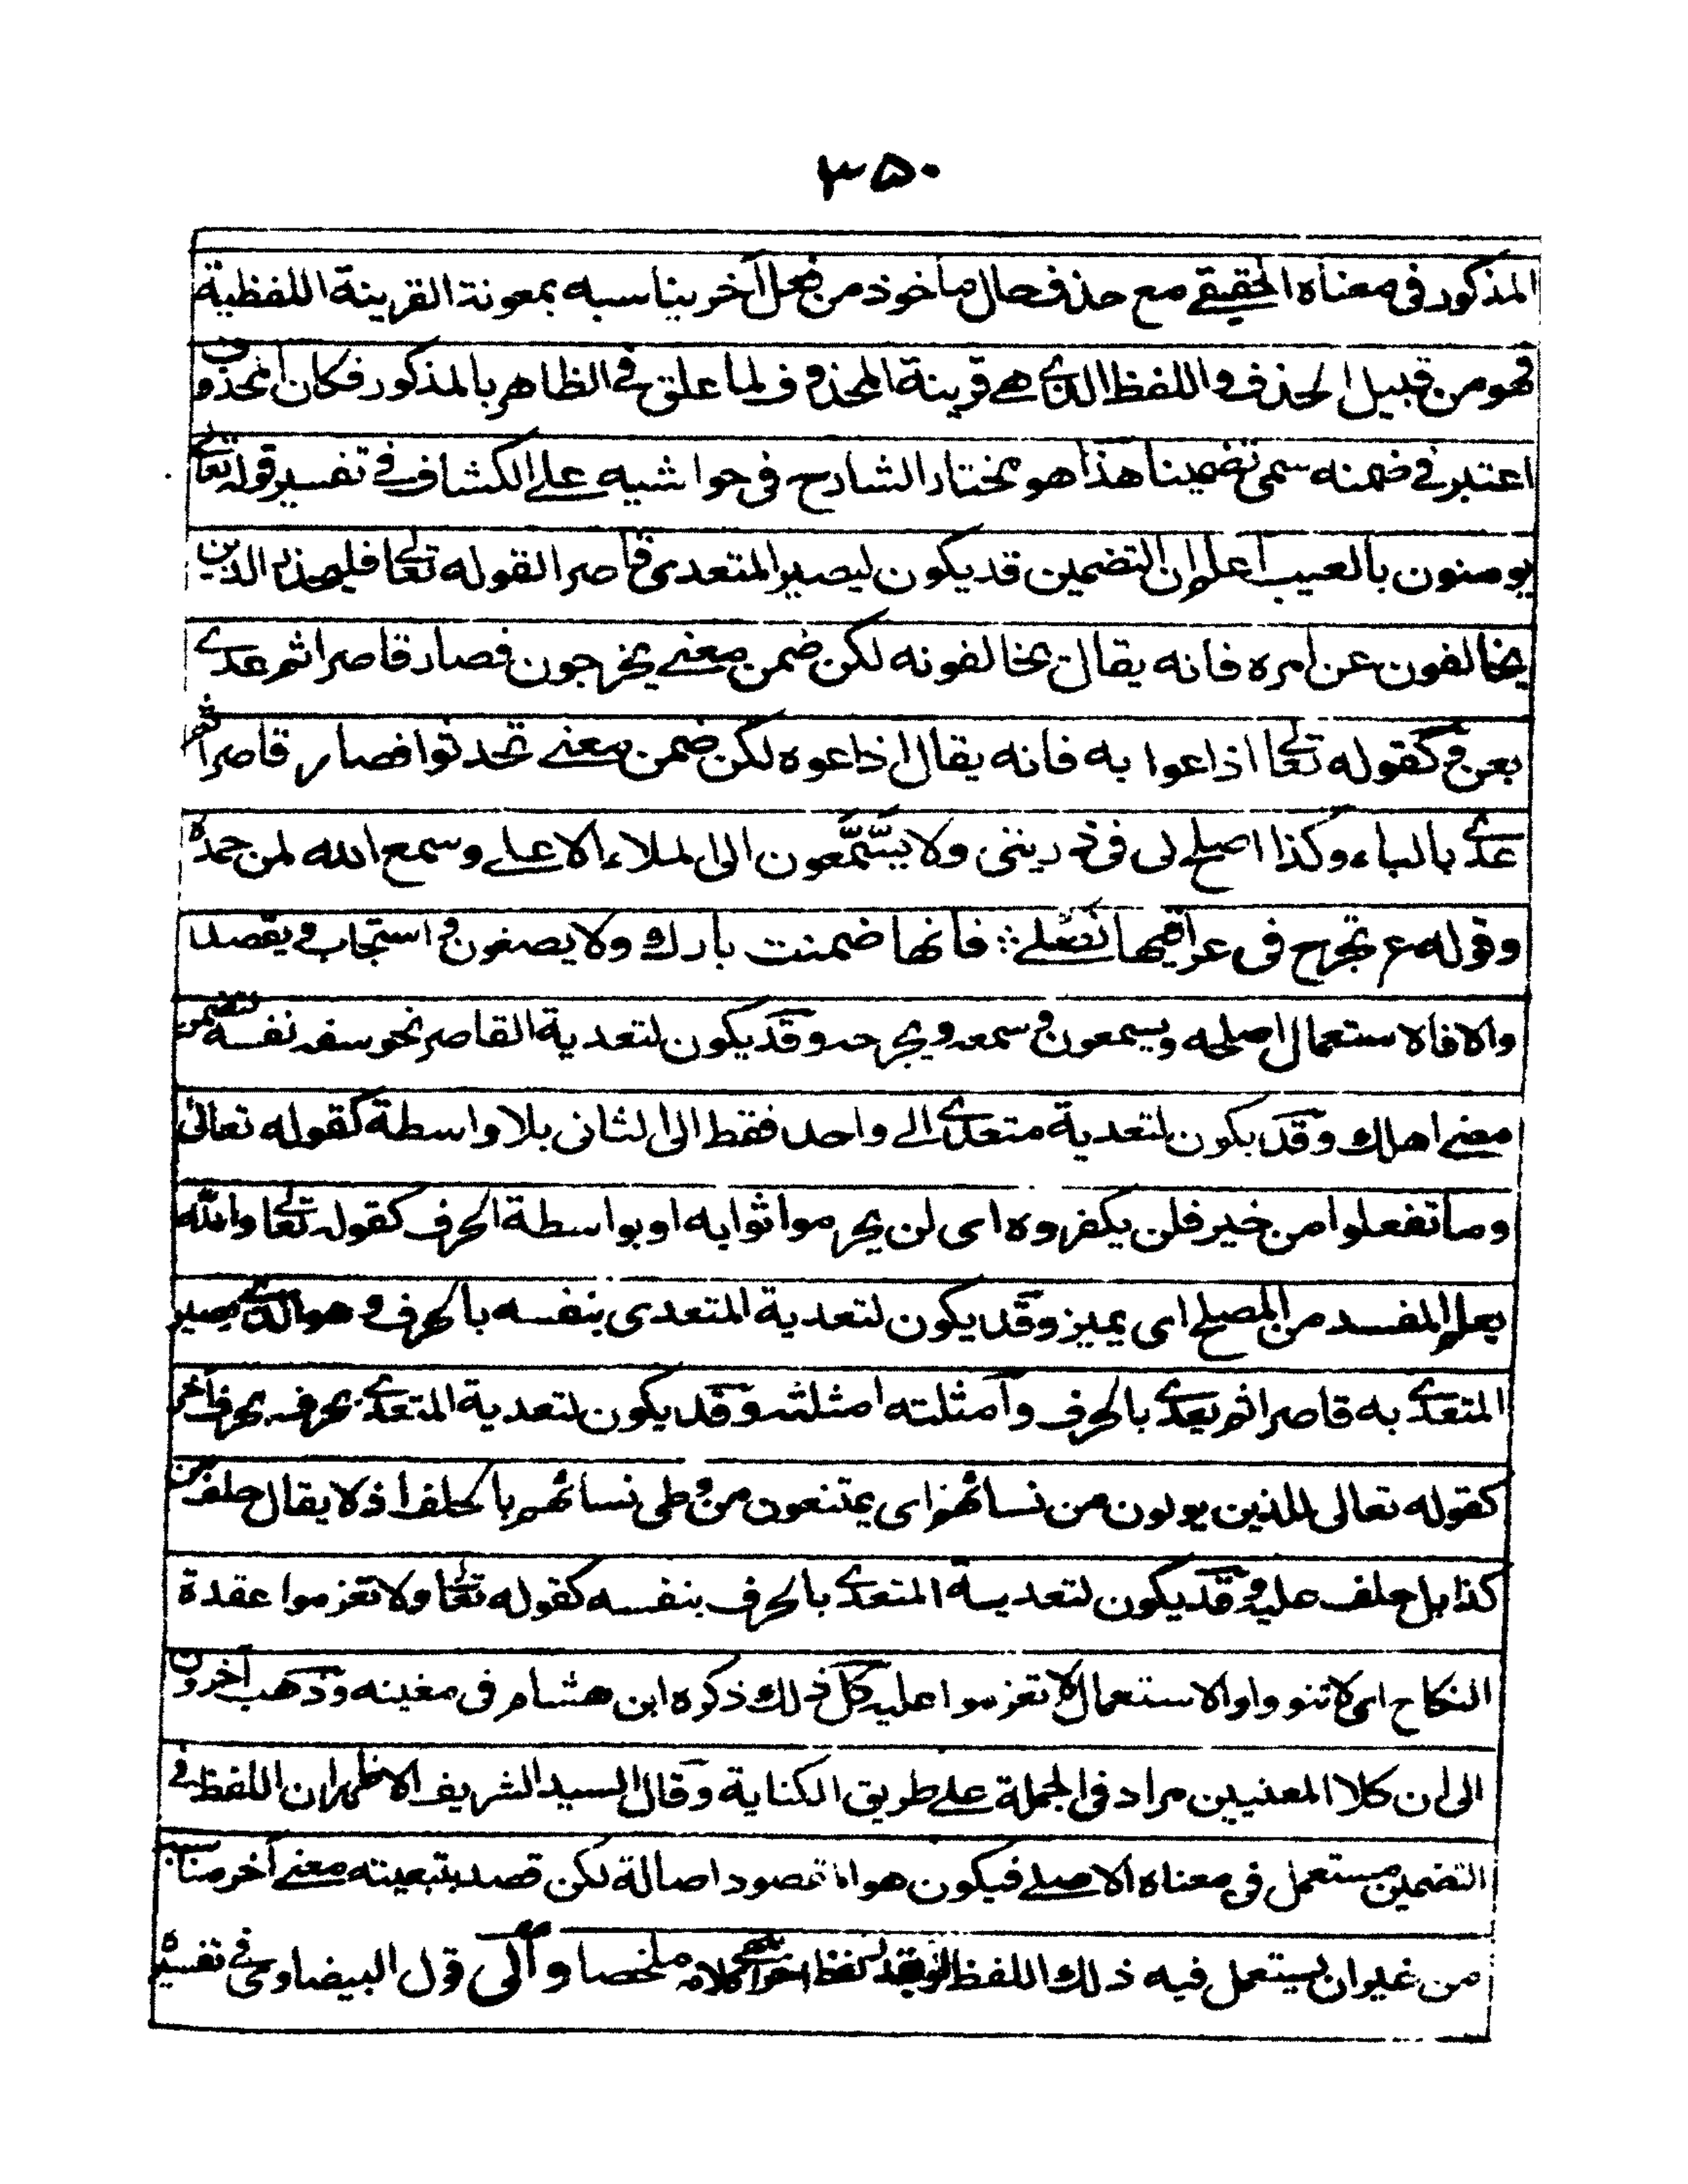 ٣٥٠
المذكور فى معناه الحقيقے مع حذف حال ماخوذ من فعل آخر يناسبه بمعونة القرينة اللفظية
فهو من قبيل الحذف واللفظ الذى هے قرينة المحذوف لما علق فے الظاهر بالمذكور فكان المحذوف
اعتبر فے ضمنه سمى تضمينا هذا هو مختار الشارح فى حواشيه علے الكشاف فے تفسير قوله تعالے
يومنون بالغيب اعلم ان التضمين قد يكون ليصير المتعدى قاصرا لقوله تعالے فليحذر الذين
يخالفون عن امره فانه يقال يخالفونه لكن ضمن معنے يخرجون فصار قاصرا ثم عدے
بعن وكقوله تعالے اذاعوا به فانه يقال اذاعوه لكن ضمن معنے تحدثوا فصار قاصرا ثم
عدے بالباء وكذا اصلح لى فى ذريتى ولا يسَّمَّعون الى الملاء الاعلے وسمع الله لمن حمده
وقوله ع تجرح فى عراقيبها نصلے ؞ فانها ضمنت بارك ولا يصغون و استجاب و يقصد
والا فالاستعمال اصلحه ويسمعون و سمعه و يجرحه وقد يكون لتعدية القاصر نحو سفه نفسه لتضمن
معنے اهلك وقد يكون لتعدية متعدے الے واحد فقط الى الثانى بلا واسطة كقوله تعالى
وما تفعلوا من خير فلن يكفروه اى لن يحرموا ثوابه او بواسطة الحرف كقوله تعالے والله
يعلم المفسد من المصلح اى يميز وقد يكون لتعدية المتعدى بنفسه بالحرف و هو الذے يصير
المتعدے به قاصرا ثم يعدے بالحرف وامثلته امثلته وقد يكون لتعدية المتعدے بحرف بحرف آخر
كقوله تعالى للذين يولون من نسائهم اى يمتنعون من وطى نسائهم بالحلف اذ لا يقال حلف من
كذا بل حلف عليه وقد يكون لتعدية المتعدے بالحرف بنفسه كقوله تعالے ولا تعزموا عقدة
النكاح اى لا تنووا والاستعمال لا تعزموا عليه كل ذلك ذكره ابن هشام فى مغنيه وذهب آخرون
الى ان كلا المعنيين مراد فى الجملة علے طريق الكناية وقال السيد الشريف الاظهر ان اللفظ فے
التضمين مستعمل فى معناه الاصلے فيكون هو المقصود اصالة لكن قصد بتبعيته معنے آخر مناسب
من غير ان يستعمل فيه ذلك اللفظ او يقدر لفظ آخر انتهى كلامه ملخصا والى قول البيضاوى فے تفسيره